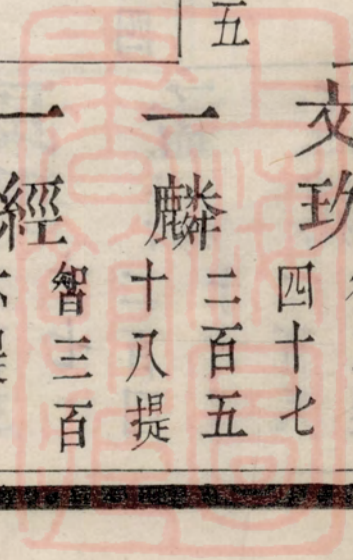 五
文玖
四十七
一麟
二百五
十八提
一經
智三百